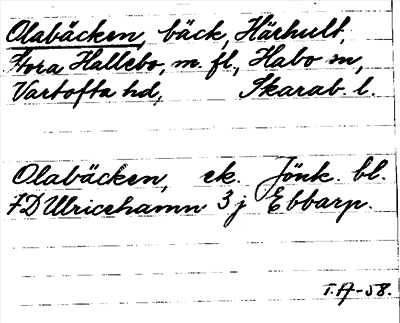 Olabäcken, bäck, Härhult,
Stora Hallebo, m. fl., Habo sn,
Vartofta hd, Skarab. l.
Olabäcken, ek. Jönk. bl.
7D Ulricehamn 3j Ebbarp.
T.A-58.